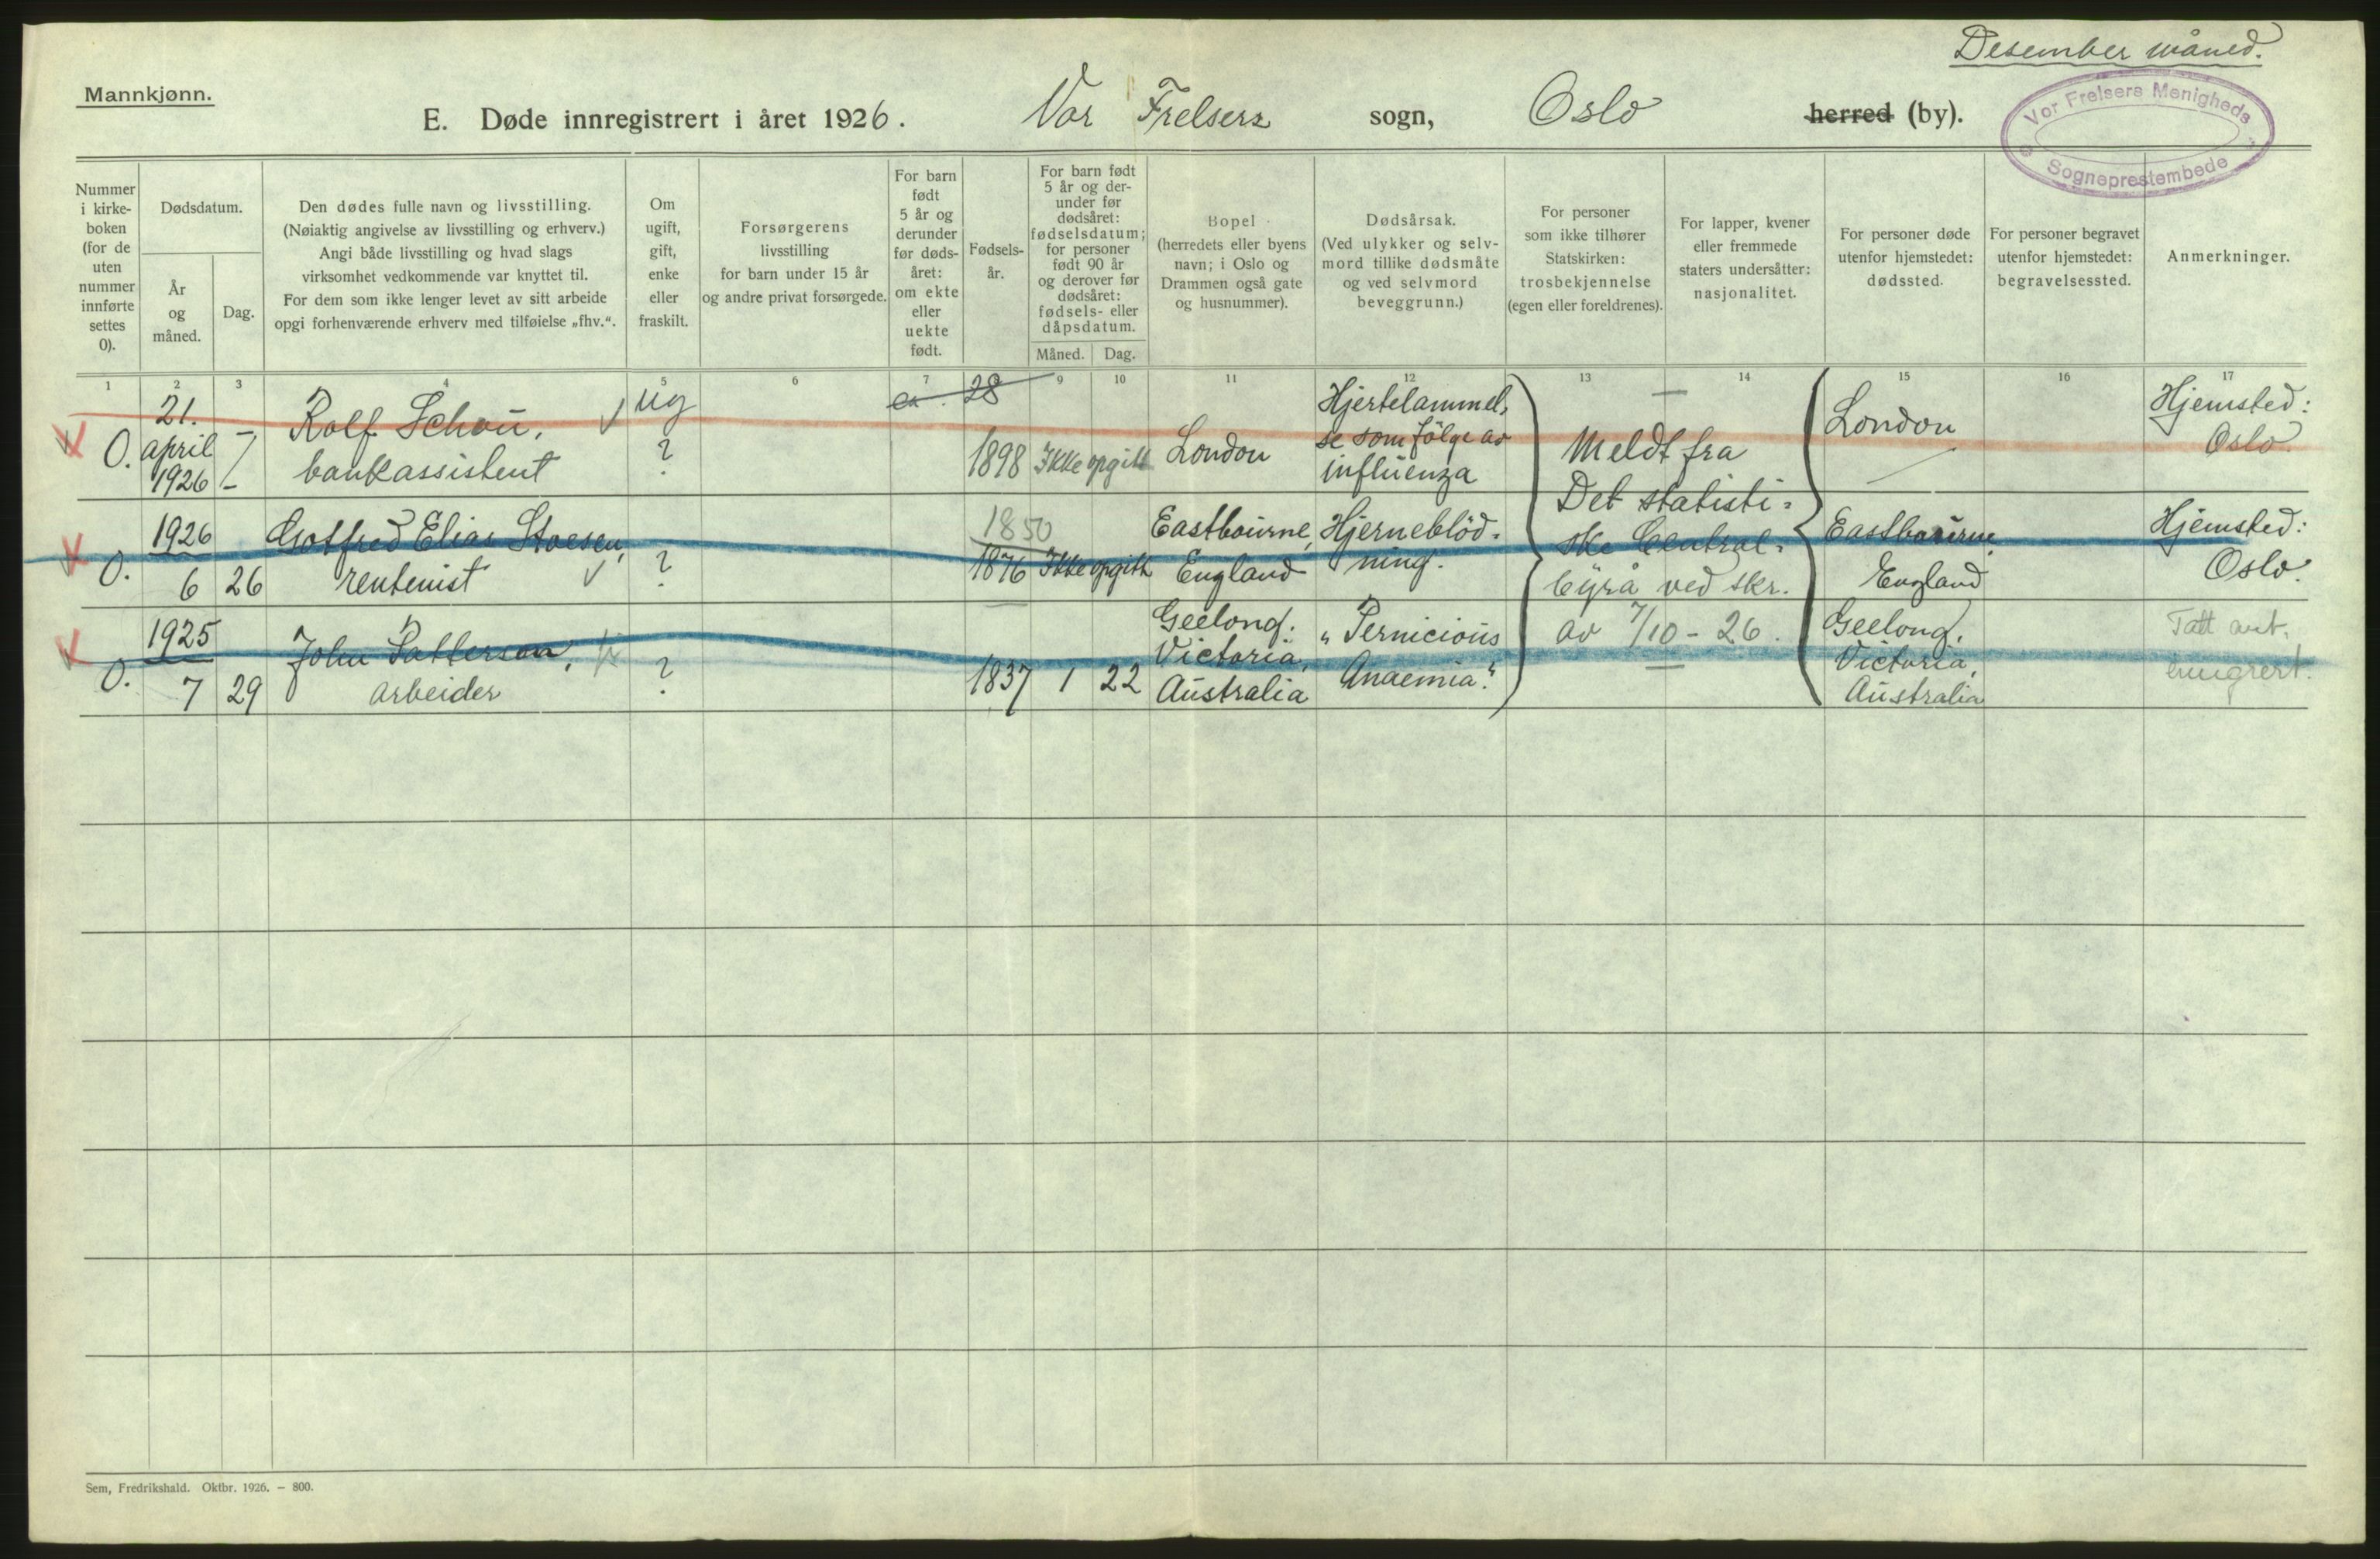 Desember måned.
Mannkjønn.
E. Døde innregistrert i året 1926. Vor Frelsers sogn, Oslo herred (by).
Vor Frelsers Menigheds
Sogneprestembede
Nummer
i kirke-
boken
(for de
uten
nummer
innførte
settes
0).
Dødsdatum.
År
og
måned.
Dag.
Den dødes fulle navn og livsstilling.
(Nøiaktig angivelse av livsstilling og erhverv.)
Angi både livsstilling og hvad slags
virksomhet vedkommende var knyttet til.
For dem som ikke lenger levet av sitt arbeide
opgi forhenværende erhverv med tilføielse „fhv.“.
Om
ugift,
gift,
enke
eller
fraskilt.
Forsørgerens
livsstilling
for barn under 15 år
og andre privat forsørgede.
For barn
født
5 år og
derunder
før døds-
året:
om ekte
eller
uekte
født.
Fødsels-
år.
For barn født
5 år og der-
under før
dødsåret:
fødselsdatum;
for personer
født 90 år
og derover før
dødsåret:
fødsels- eller
dåpsdatum.
Måned. Dag.
Bopel
(herredets eller byens
navn; i Oslo og
Drammen også gate
og husnummer).
Dødsårsak.
(Ved ulykker og selv-
mord tillike dødsmåte
og ved selvmord
beveggrunn.)
For personer
som ikke tilhører
Statskirken:
trosbekjennelse
(egen eller foreldrenes).
For lapper, kvener
eller fremmede
staters undersåtter:
nasjonalitet.
For personer døde
utenfor hjemstedet:
dødssted.
For personer begravet
utenfor hjemstedet:
begravelsessted.
Anmerkninger.
1 2 3 4 5 6 7 8 9 10 11 12 13 14 15 16 17
0.
21.
april
1926
Rolf Schou,
bankassistent
ug
?
28
1898 Ikke opgitt
London
Hjertelammel-
se som følge av
influenza
Meldt fra
Det statisti-
ske Central-
byrå ved skr.
av 7/10 - 26.
London
Hjemsted:
Oslo.
0.
1926
6 26
Gotfred Elias Stoesen,
rentenist
?
1850
1876 Ikke opgitt
Eastbourne,
England
Hjerneblöd-
ning.
Eastbourne,
England
Hjemsted:
Oslo.
0.
1925
7 29
John Patterson,
arbeider
?
1837 1 22
Geelong.
Victoria,
Australia
„Pernicious
Anaemia.“
Geelong.
Victoria,
Australia
Tatt ant.
emigrert.
Sem, Fredrikshald. Oktbr. 1926. — 800.